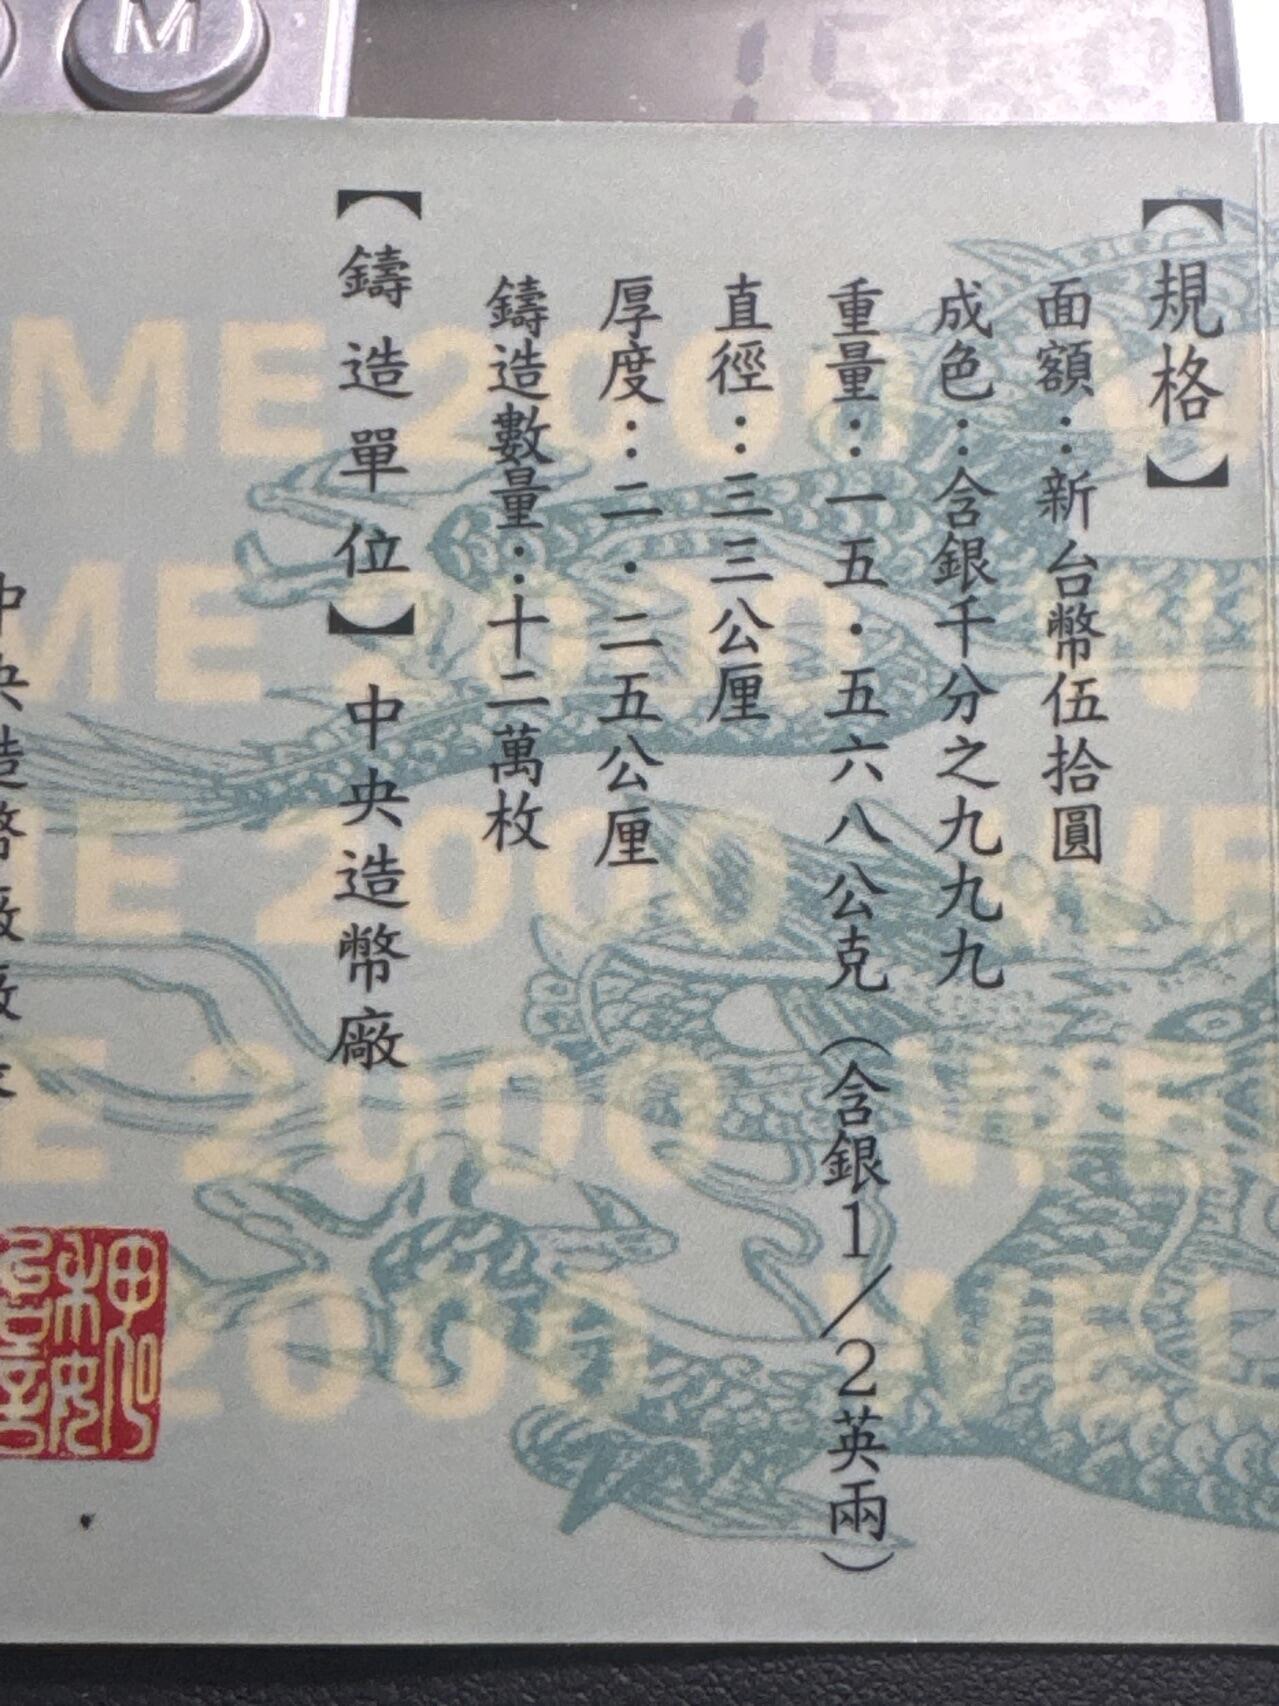 M
【規格】
面額：新台幣伍拾圓
成色：含銀千分之九九九
重量：一五．五六八公克（含銀1／2英兩）
直徑：三三公厘
厚度：二．二五公厘
鑄造數量：十二萬枚
【鑄造單位】中央造幣廠
中央造幣廠廠
ME 2000 W
ME 2000 WE
ME 2000 WE
E 2000 WE
2000 WEL